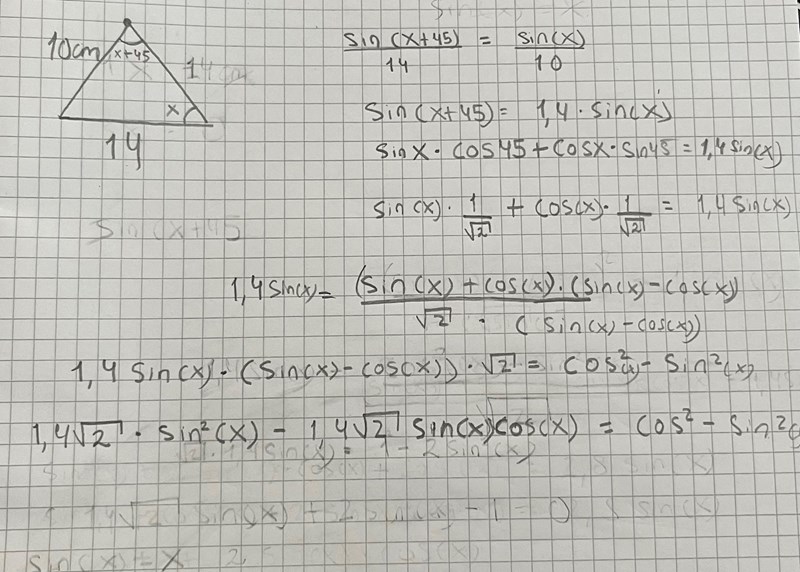 10cm
x+45
x
14
sin(x+45)/14 = sin(x)/10
Sin(x+45) = 1,4 · sin(x)
sin x · cos45 + cosx · sin45 = 1,4 sin(x)
sin(x) · 1/√2 + cos(x) · 1/√2 = 1,4 sin(x)
sin(x+45
1,4 sin(x) = (sin(x) + cos(x)) · (sin(x) - cos(x)) / √2 · (sin(x) - cos(x))
1,4 sin(x) · (sin(x) - cos(x)) · √2 = cos²(x) - sin²(x)
1,4√2 · sin²(x) - 1,4√2 sin(x)cos(x) = cos² - sin²
sin(x) = x